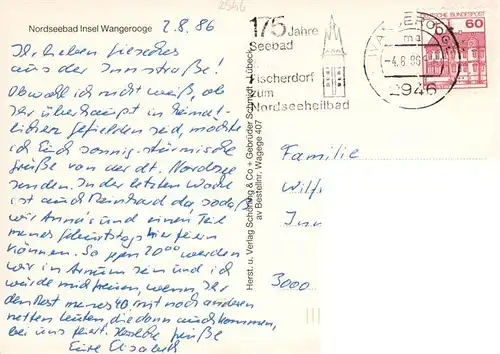 2546
Nordseebad Insel Wangerooge 2.8.86
Ihr lieben
aus der Innstraße!
Obwohl ich nicht weiß, ob
Ihr überhaupt in heimat-
lichen Gefielden seid, möchte
ich Euch sonnig-stürmische
Grüße von der dt. Nordsee
senden. In der letzten Woche
ist auch Meinhard da sodaß
wir Anna's und einen Teil
meines Geburtstags hier feiern
können. So gegen 20⁰⁰ werden
wir in sein und ich
würde mich freuen, wenn Ihr
den Rest meines 40. mit noch anderen
netten Leuten, die dann auch kommen,
bei uns feiert. Herzliche Grüße
Eure Elisabeth
Herst. u. Verlag Schöning & Co + Gebrüder Schmidt, Lübeck
Bestellnr. Wagege 407
175 Jahre
Seebad
Fischerdorf
zum
Nordseeheilbad
WANGEROOGE
-4.8.86
2946
DEUTSCHE BUNDESPOST
60
Familie
Wilfr
Inn
3000